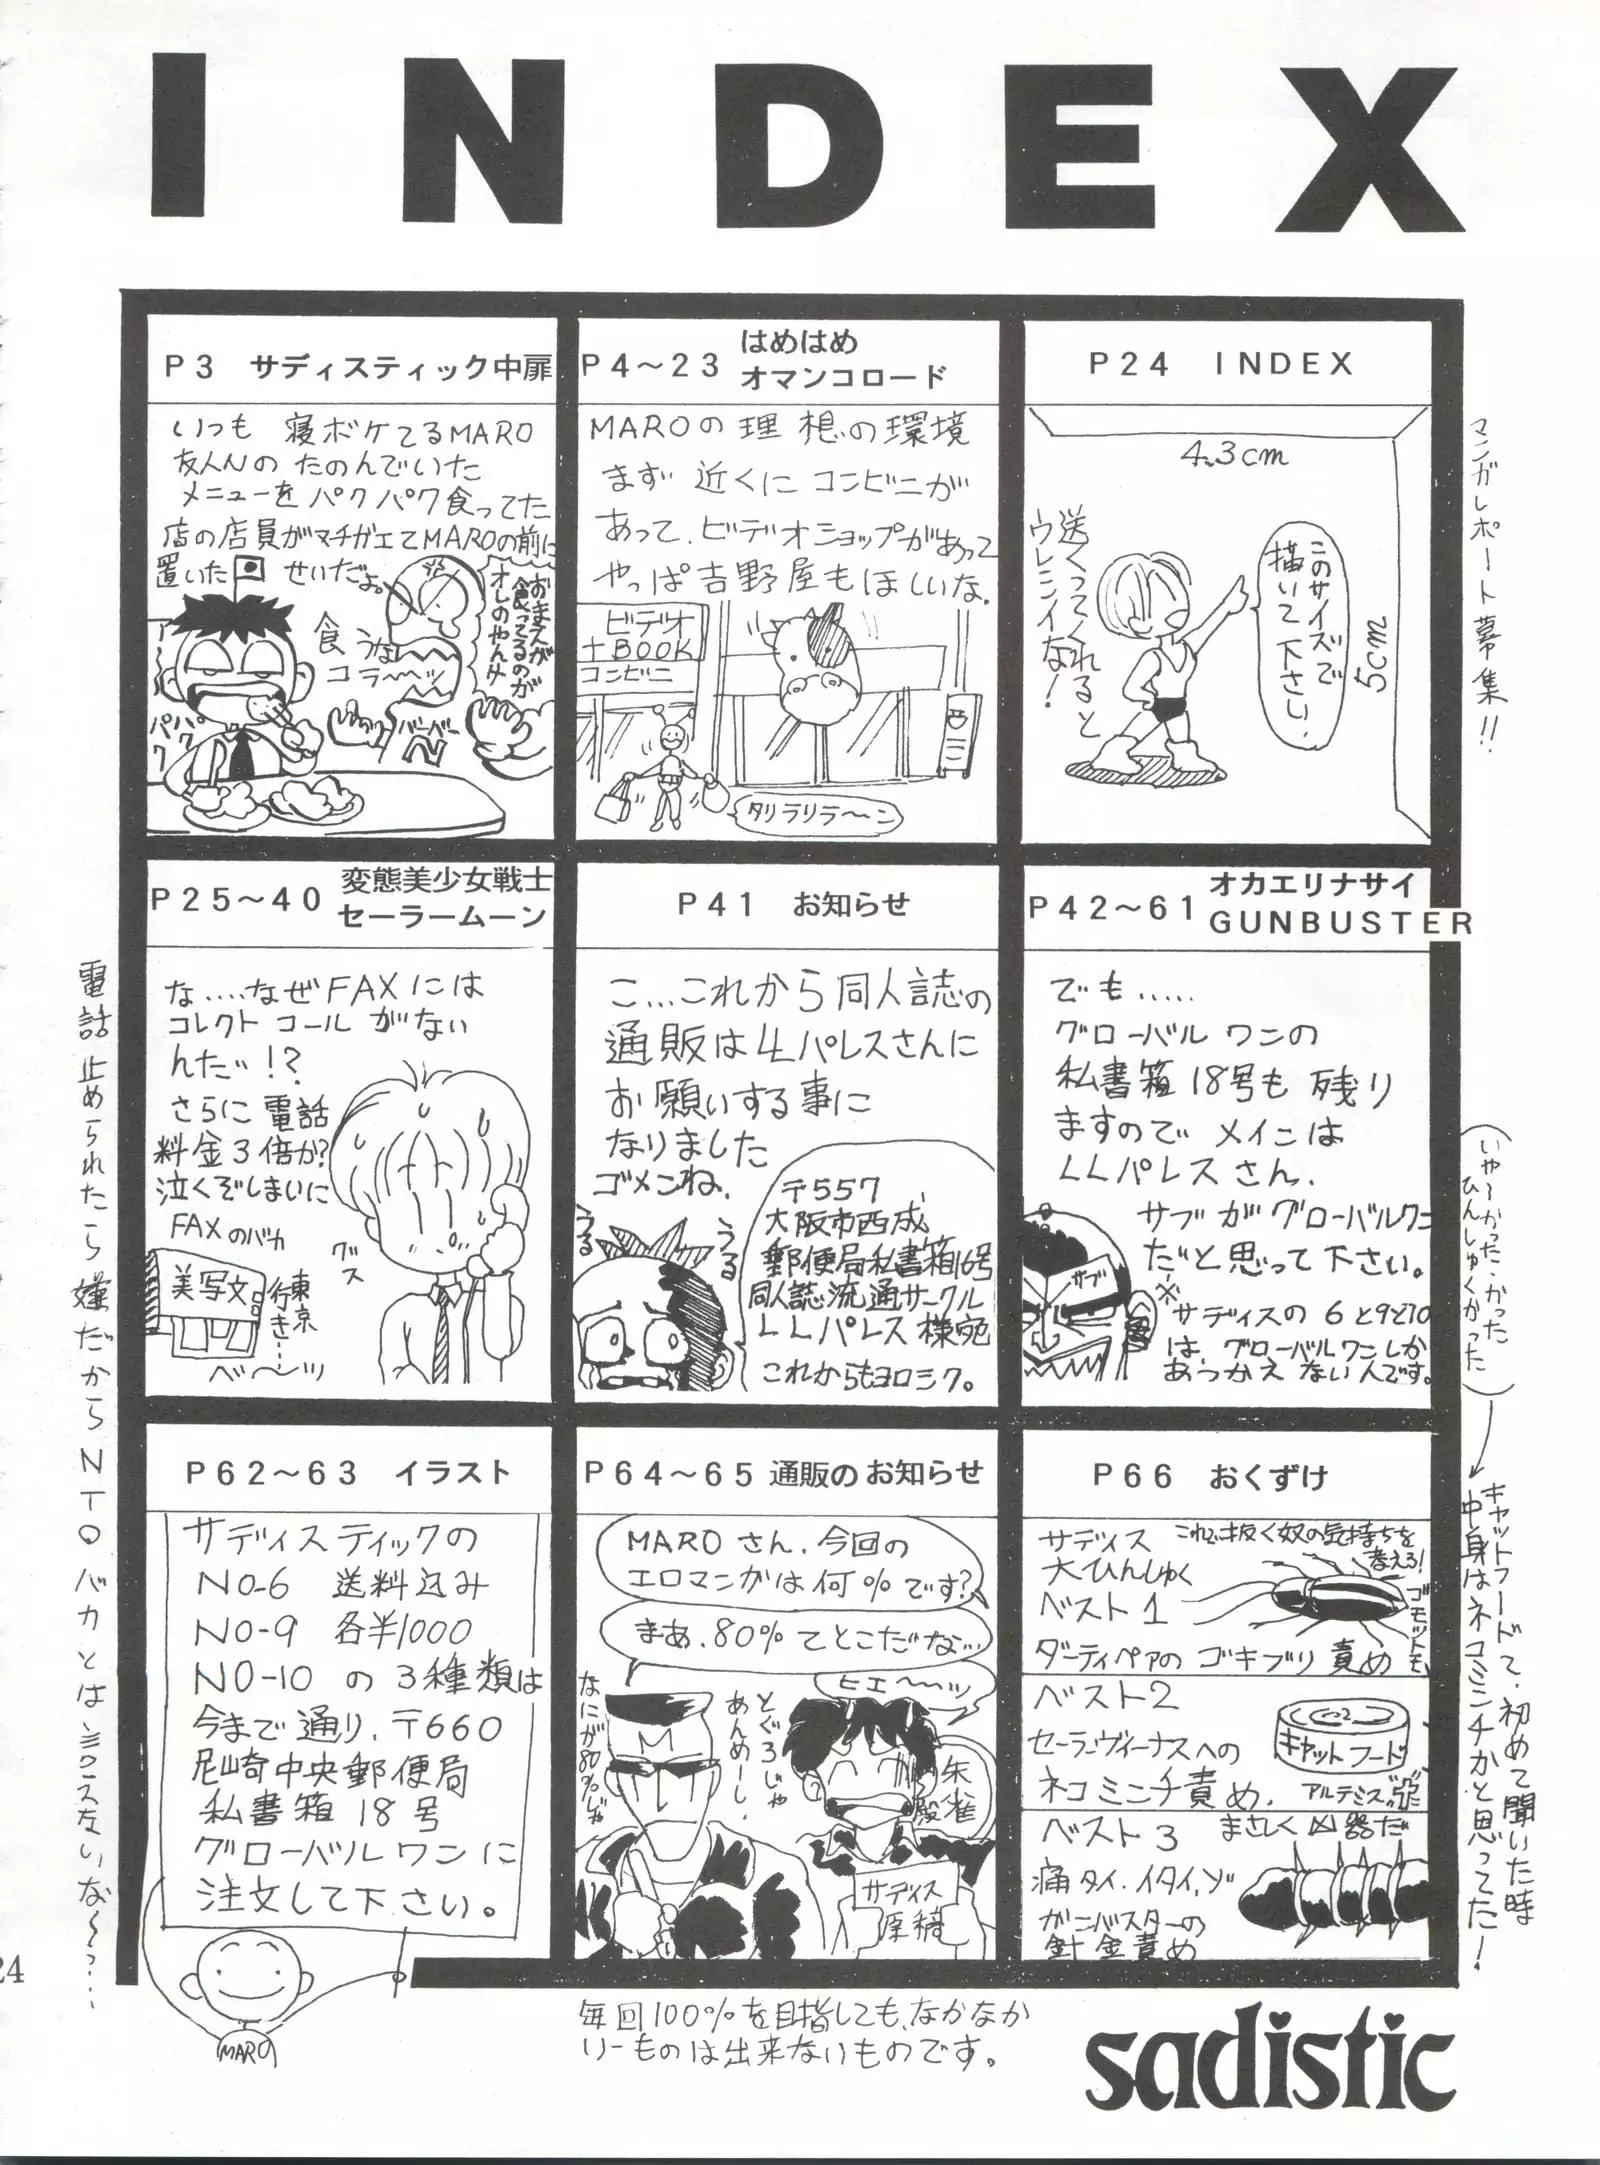 INDEX
P3 サディスティック中扉
いつも 寝ボケてるMARO
友人Nの たのんでいた
メニューを パクパク食ってた
店の店員がマチガエてMAROの前に
置いた せいだよ。
おまえが
食ってるのが
オレのやんけ
食
うな
コラ〜〜ッ
パクパク
バーバー
N
P4〜23 はめはめ
オマンコロード
MAROの理想の環境
まず 近くに コンビニが
あって、ビデオショップがあって
やっぱ吉野屋もほしいな。
ビデオ
+BOOK
コンビニ
タリラリラ〜〜ン
P24 INDEX
4.3cm
5cm
このサイズで
描いて下さい。
送ってくれると
ウレシイな!
マンガレポート募集!!
P25〜40 変態美少女戦士
セーラームーン
な....なぜFAXには
コレクト コールがない
んだ!?
さらに電話
料金3倍か?
泣くぞしまいに
FAXのバカ
グス
美写文
東京
行き…
ベ〜〜ッ
電話止められたら嫌だからNTQバカとは言ワえない、な〜っ…
P41 お知らせ
こ...これから同人誌の
通販はLLパレスさんに
お願いする事に
なりました
ゴメンね。
うる
うる
〒557
大阪市西成
郵便局私書箱16号
同人誌流通サークル
LLパレス 様宛
これからもヨロシク。
P42〜61 オカエリナサイ
GUNBUSTER
でも.....
グローバル ワンの
私書箱 18号も 残り
ますので メインは
LLパレスさん、
サブがグローバルワン
だと思って下さい。
サブ
※
サディスの 6と9と10
は、グローバルワンしか
あつかえ ないんです。
P62〜63 イラスト
サディスティックの
NO-6 送料込み
NO-9 各半1000
NO-10 の 3種類は
今まで通り、〒660
尼崎中央郵便局
私書箱 18号
グローバルワンに
注文して下さい。
MARO
P64〜65 通販のお知らせ
MAROさん、今回の
エロマンガは何%です?
まあ、80%てとこだな…
ヒエ〜〜ッ
なにが80%じゃ
とぐろじゃ
あんめーし。
M
朱雀
殿
サディス
原稿
毎回100%を目指しても、なかなか
いーものは出来ないものです。
P66 おくずけ
サディス
大ひんしゅく
ベスト1
これで抜く奴の気持ちを
考えろ!
ゴキットモ
ダーティペアの ゴキブリ責め
ベスト2
セーラーヴィーナスへの
ネコミンチ責め、
キャットフード
アルテミス
ベスト3
まさしく凶器だ
痛タイ、イタイ、ゾ
ガンバスターの
針金責め
(いや〜かった、かった
ひんしゅくかった)
キャットフードって、初めて聞いた時
中身はネコミンチかと思ってた!
sadistic
24